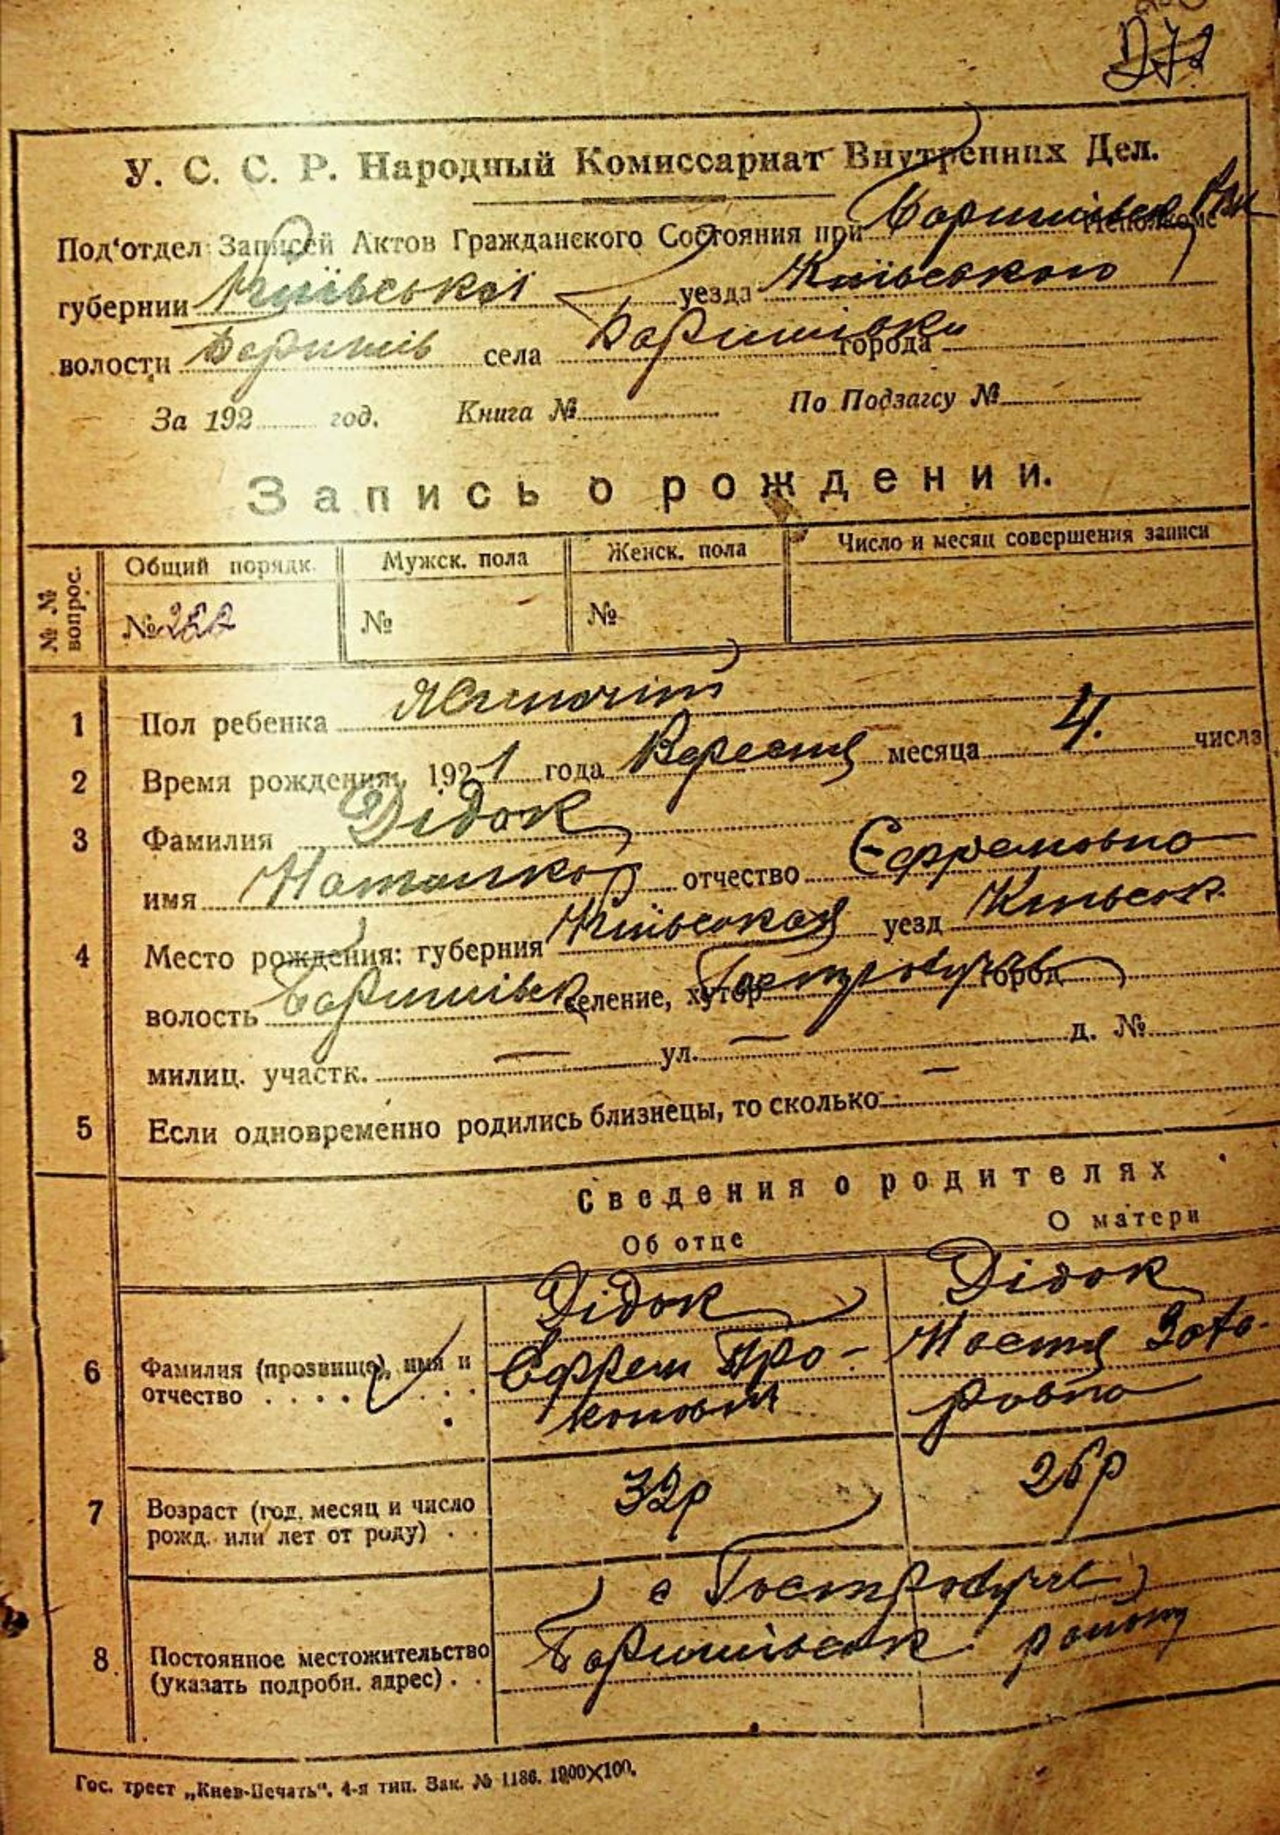 У. С. С. Р. Народный Комиссариат Внутренних Дел.
Под‘отдел Записей Актов Гражданского Состояния при Исполкоме
губернии Київської уезда Київського
волости Баришів села Баришівки города
За 192 год. Книга № По Подзагсу №
Запись о рождении.
№ № вопрос. Общий порядк. Мужск. пола Женск. пола Число и месяц совершения записи
№ № №
1 Пол ребенка Жиночіт
2 Время рождения: 1921 года Вересня месяца 4. числа
3 Фамилия Дідок
имя Наталка отчество Єфремовна
4 Место рождения: губерния Київська уезд Київськ.
волость Баришівск селение, хутор Гостролуччє город
милиц. участк. — ул. — д. №
5 Если одновременно родились близнецы, то сколько: —
Сведения о родителях
Об отце О матери
Дідок Дідок
6 Фамилия (прозвище), имя и Ефрем Про- Настя
отчество . . . . . . . . коповит ровна
7 Возраст (год, месяц и число 32р 26р
рожд. или лет от роду) . .
с Гостролуччє
8 Постоянное местожительство Баришівськ району
(указать подробн. адрес) . .
Гос. трест „Киев-Печать“. 4-я тип. Зак. № 1186. 1900×100.